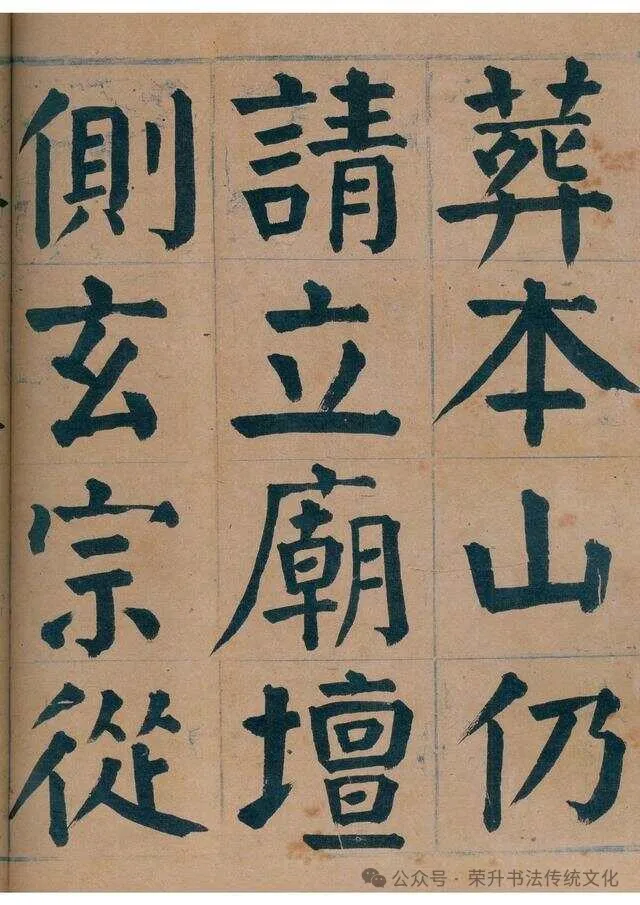 葬本山仍
請立廟壇
側玄宗從
公众号·荣升书法传统文化